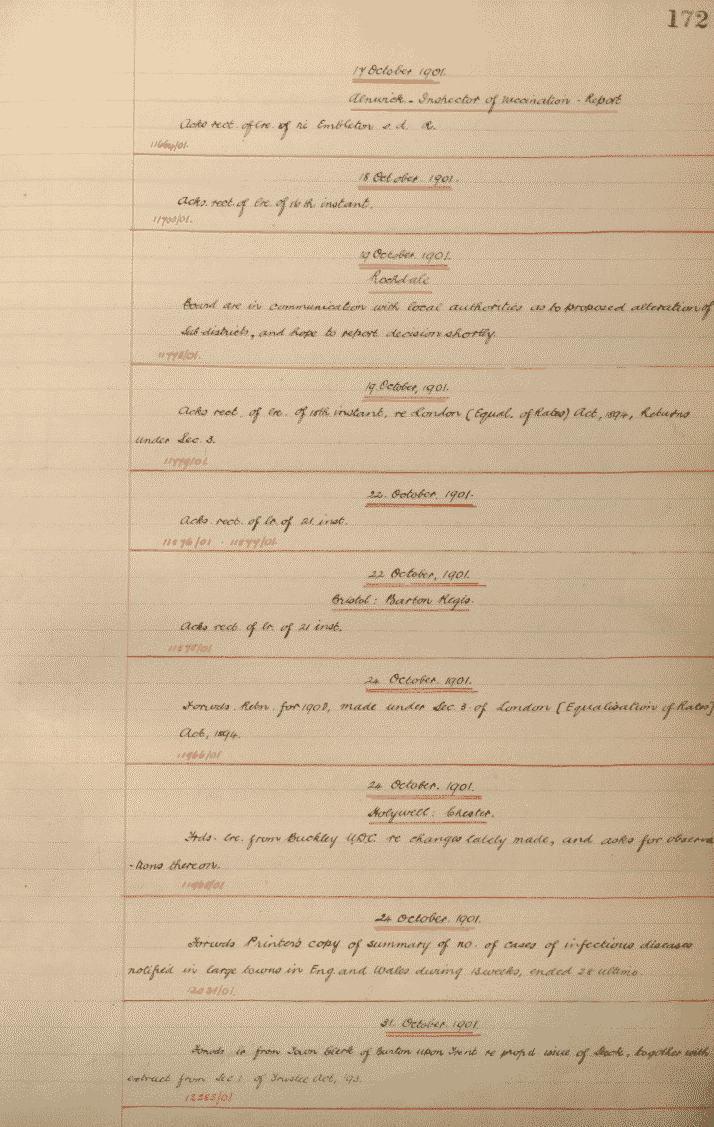 172
17 October 1901.
Alnwick - Inspector of Vaccination - Report
Acks rect. of lre. of Embleton s.d. R.
18 October 1901.
Acks. rect. of lre. of 16th instant.
11700/01.
19 October. 1901.
Rochdale
Board are in communication with local authorities as to proposed alteration of
Sub-districts, and hope to report decision shortly.
11778/01.
19 October, 1901.
Acks rect. of lre. of 18th instant, re London (Equal. of Rates) Act, 1894, Returns
under Sec. 3.
11779/01.
22. October. 1901.
Acks. rect. of lr. of 21 inst.
11876/01 - 11877/01.
22 October, 1901.
Bristol: Barton Regis.
Acks rect. of lr. of 21 inst.
11878/01
24 October. 1901.
Forwds. Retn. for 1900, made under Sec. 3 of London (Equalisation of Rates)
Act, 1894.
11966/01
24 October. 1901.
Holywell: Chester.
Frds. lre. from Buckley U.D.C. re changes lately made, and asks for observa
-tions thereon.
24 October. 1901.
Forwds Printer's copy of summary of no. of cases of infectious diseases
notified in large towns in Eng. and Wales during 13 weeks, ended 28 ultimo.
31. October. 1901.
Forwds lr from Town Clerk of Burton upon Trent re propd issue of Stock, together with
extract from Sec 1 of Trustee Act, '93.
12283/01